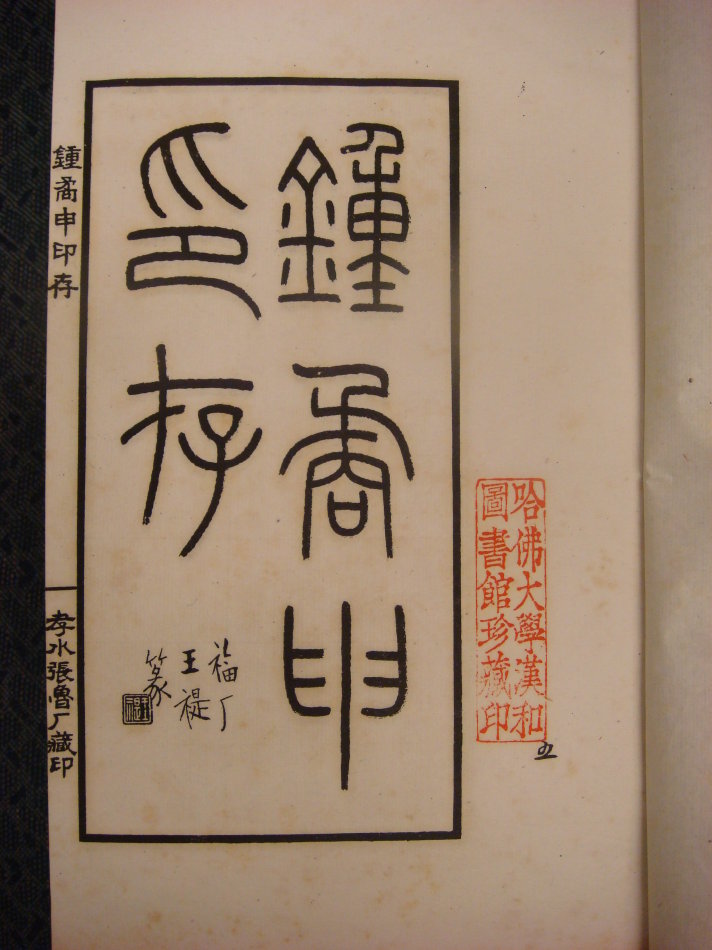 鍾矞申
印存
福厂
王禔
篆
鍾矞申印存
孝水張魯厂藏印
哈佛大學漢和
圖書館珍藏印